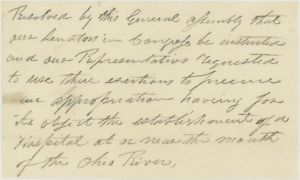 Resolved by this General Assembly that
our Senators in Congress be instructed
and our Representatives requested
to use their exertions to procure
an appropriation having for
its object the establishment of a
Hospital at or near the mouth
of the Ohio River,